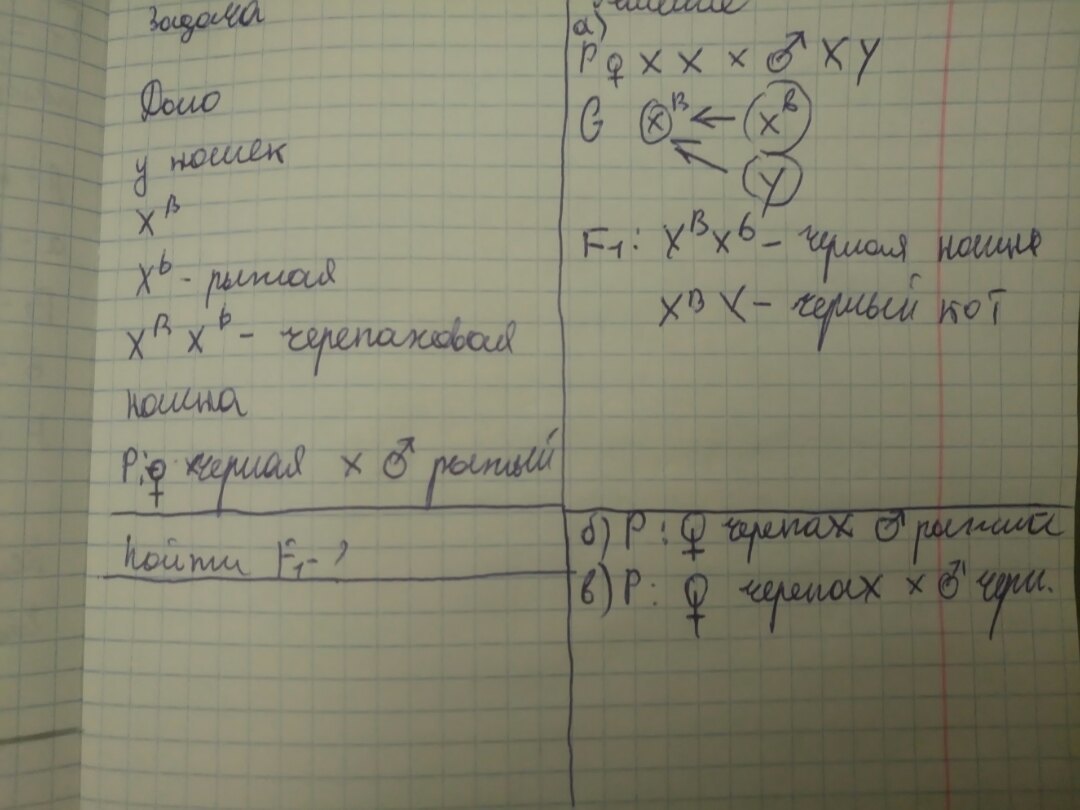 Задача
Дано
у кошек
X^B
X^b - рыжая
X^B X^b - черепаховая
кошка
P: ♀ черная × ♂ рыжий
Найти F₁-?
а)
P ♀ X X × ♂ X Y
G X^B ← X^B
Y
F₁: X^B X^b - черная кошка
X^B Y - черный кот
б) P: ♀ черепах ♂ рыжий
в) P: ♀ черепах × ♂ черн.